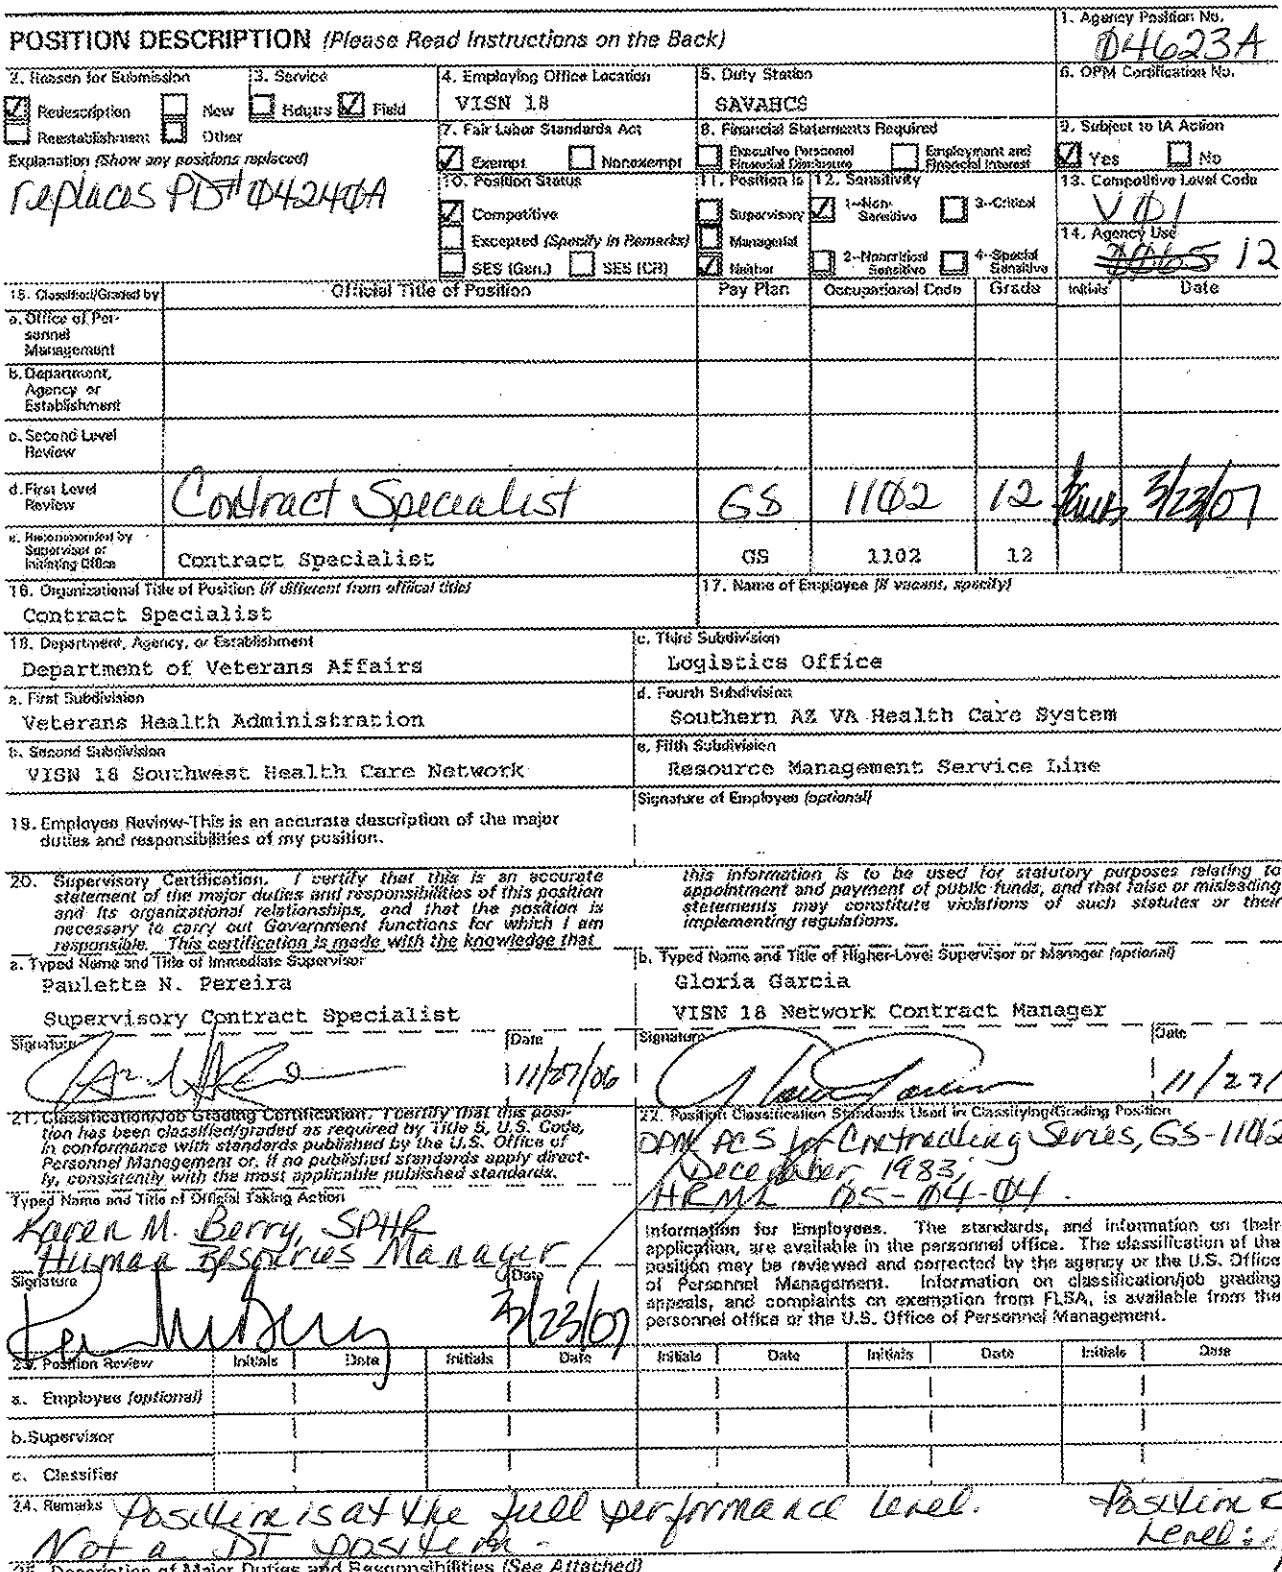 POSITION DESCRIPTION (Please Read Instructions on the Back)
1. Agency Position No.
04623A
2. Reason for Submission
Redescription New
Reestablishment Other
3. Service
Hdqtrs Field
4. Employing Office Location
VISN 18
5. Duty Station
SAVAHCS
6. OPM Certification No.
Explanation (Show any positions replaced)
replaces PD# 04240A
7. Fair Labor Standards Act
Exempt Nonexempt
8. Financial Statements Required
Executive Personnel Financial Disclosure
Employment and Financial Interest
9. Subject to IA Action
Yes No
10. Position Status
Competitive
Excepted (Specify in Remarks)
SES (Gen.) SES (CR)
11. Position is
Supervisory
Managerial
Neither
12. Sensitivity
1--Non-Sensitive
3--Critical
2--Noncritical Sensitive
4--Special Sensitive
13. Competitive Level Code
V01
14. Agency Use
12
15. Classified/Graded by
Official Title of Position
Pay Plan
Occupational Code
Grade
Initials
Date
a. Office of Personnel Management
b. Department, Agency or Establishment
c. Second Level Review
d. First Level Review
Contract Specialist GS 1102 12 3/23/07
e. Recommended by Supervisor or Initiating Office
Contract Specialist GS 1102 12
16. Organizational Title of Position (if different from offical title)
Contract Specialist
17. Name of Employee (if vacant, specify)
18. Department, Agency, or Establishment
Department of Veterans Affairs
c. Third Subdivision
Logistics Office
a. First Subdivision
Veterans Health Administration
d. Fourth Subdivision
Southern AZ VA Health Care System
b. Second Subdivision
VISN 18 Southwest Health Care Network
e. Fifth Subdivision
Resource Management Service Line
19. Employee Review-This is an accurate description of the major
duties and responsibilities of my position.
Signature of Employee (optional)
20. Supervisory Certification. I certify that this is an accurate
statement of the major duties and responsibilities of this position
and its organizational relationships, and that the position is
necessary to carry out Government functions for which I am
responsible. This certification is made with the knowledge that
this information is to be used for statutory purposes relating to
appointment and payment of public funds, and that false or misleading
statements may constitute violations of such statutes or their
implementing regulations.
a. Typed Name and Title of Immediate Supervisor
Paulette N. Pereira
Supervisory Contract Specialist
Signature
Date
11/27/06
b. Typed Name and Title of Higher-Level Supervisor or Manager (optional)
Gloria Garcia
VISN 18 Network Contract Manager
Signature
Date
11/27/
21. Classification/Job Grading Certification. I certify that this posi-
tion has been classified/graded as required by Title 5, U.S. Code,
in conformance with standards published by the U.S. Office of
Personnel Management or, if no published standards apply direct-
ly, consistently with the most applicable published standards.
Typed Name and Title of Official Taking Action
Karen M. Berry, SPHR
Human Resources Manager
Signature
Date
3/23/07
22. Position Classification Standards Used in Classifying/Grading Position
OPM PCS for Contracting Series, GS-1102
December 1983;
HRML 05-04-04.
Information for Employees. The standards, and information on their
application, are available in the personnel office. The classification of the
position may be reviewed and corrected by the agency or the U.S. Office
of Personnel Management. Information on classification/job grading
appeals, and complaints on exemption from FLSA, is available from the
personnel office or the U.S. Office of Personnel Management.
23. Position Review
Initials Date Initials Date Initials Date Initials Date Initials Date
a. Employee (optional)
b. Supervisor
c. Classifier
24. Remarks
Position is at the full performance level.
Not a DT position.
Position
Level:
25. Description of Major Duties and Responsibilities (See Attached)